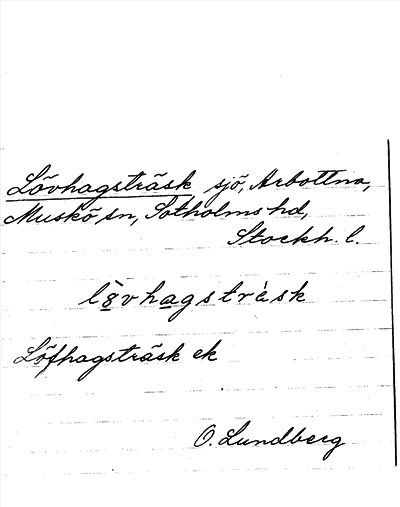 Lövhagsträsk sjö, Arbottna,
Muskö sn, Sotholms hd,
Stockh. l.
lȍ̲vha̲gstrèsk
Löfhagsträsk ek
O. Lundberg